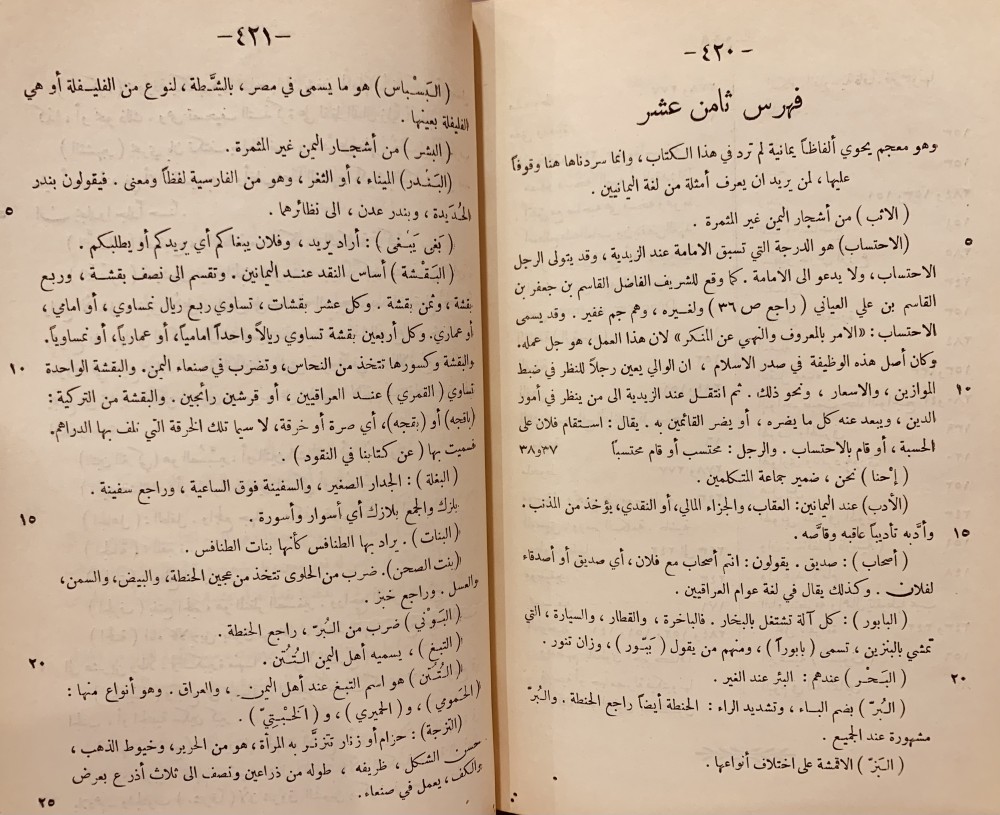 -٤٢٠-
فهرس ثامن عشر
وهو معجم يحوي ألفاظاً يمانية لم ترد في هذا الكتاب، وانما سردناها هنا وقوفاً
عليها، لمن يريد ان يعرف أمثلة من لغة اليمانيين .
( الاثب ) من أشجار اليمن غير المثمرة .
(الاحتساب) هو الدرجة التي تسبق الامامة عند الزيدية ، وقد يتولى الرجل ٥
الاحتساب، ولا يدعو الى الامامة . كما وقع للشريف الفاضل القاسم بن جعفر بن
القاسم بن علي العياني ( راجع ص ٣٦ ) ولغيره ، وهم جم غفير . وقد يسمى
الاحتساب : «الامر بالمعروف والنهي عن المنكر» لان هذا العمل، هو جل عمله.
وكان أصل هذه الوظيفة في صدر الاسلام ، ان الوالي يعين رجلاً للنظر في ضبط
الموازين ، والاسعار ، ونحو ذلك . ثم انتقل عند الزيدية الى من ينظر في أمور ١٠
الدين ، ويبعد عنه كل ما يضره ، أو يضر القائمين به . يقال : استقام فلان على
الحسبة ، أو قام بالاحتساب . والرجل : محتسب أو قام محتسباً ٣٧و٣٨
( إحنا ) نحن ، ضمير جماعة المتكلمين .
(الأدب) عند اليمانين: العقاب، والجزاء المالي، أو النقدي، يؤخذ من المذنب .
وأدَّبه تأديباً عاقبه وقاصَّه . ١٥
( أصحاب ) : صديق . يقولون : انتم أصحاب مع فلان ، أي صديق أو أصدقاء
لفلان . وكذلك يقال في لغة عوام العراقيين .
( البابور ) : كل آلة تشتغل بالبخار . فالباخرة ، والقطار ، والسيارة ، التي
تمشي بالبنزين ، تسمى ( بابوراً ) ، ومنهم من يقول ( بَبّور ) ، وزان تنور .
( البَحْر ) عندهم : البئر عند الغير . ٢٠
( البُرّ ) بضم الباء ، وتشديد الراء : الحنطة أيضاً راجع الحنطة . والبُرّ
مشهورة عند الجميع .
( البَزّ ) الاقمشة على اختلاف أنواعها .
-٤٢١-
( البَسْباس ) هو ما يسمى في مصر ، بالشَّطة ، لنوع من الفليفلة أو هي
الفليفلة بعينها .
( البشر ) من أشجار اليمن غير المثمرة .
(البَنْدر) الميناء ، أو الثغر ، وهو من الفارسية لفظاً ومعنى . فيقولون بندر
الحُدَيدة ، وبندر عدن ، الى نظائرهما . ٥
( بَغى يَبْغى ) : أراد يريد ، وفلان يبغاكم أي يريدكم أو يطلبكم .
(البَقْشة ) أساس النقد عند اليمانين . وتقسم الى نصف بقشة ، وربع
بقشة ، وثمن بقشة . وكل عشر بقشات ، تساوي ربع ريال نمساوي ، أو امامي ،
أو عماري. وكل أربعين بقشة تساوي ريالاً واحداً امامياً، أو عمارياً، أو نمساوياً.
والبقشة وكسورها تتخذ من النحاس، وتضرب في صنعاء اليمن. والبقشة الواحدة ١٠
تساوي ( القمري ) عند العراقيين ، أو قرشين رائجين . والبقشة من التركية :
(باقجه) أو (بقجه)، أي صرة أو خرقة، لا سيما تلك الخرقة التي نلف بها الدراهم.
فسميت بها ( عن كتابنا في النقود ) .
( البغلة ) : الجدار الصغير ، والسفينة فوق الساعية ، وراجع سفينة .
بلزك والجمع بلازك أي أسوار وأسورة . ١٥
(البنات) . يراد بها الطنافس كأنها بنات الطنافس .
(بنت الصحن). ضرب من الحلوى تتخذ من عجين الحنطة، والبيض، والسمن،
والعسل . وراجع خبز .
(البَوْني) ضرب من البُرّ ، راجع الحنطة .
(التبغ) ، يسميه أهل اليمن التُتُن . ٢٠
(التُتُن) هو اسم التبغ عند أهل اليمن ، والعراق . وهو أنواع منها :
(الحَمومي) ، و (الحميري) ، و (الخَبْتِيّ) .
(الترجة) : حزام أو زنار تتزنَّر به المرأة ، هو من الحرير، وخيوط الذهب ،
حسن الشكل ، ظريفه ، طوله من ذراعين ونصف الى ثلاث أذرع بعرض
والكف، يعمل في صنعاء. ٢٥